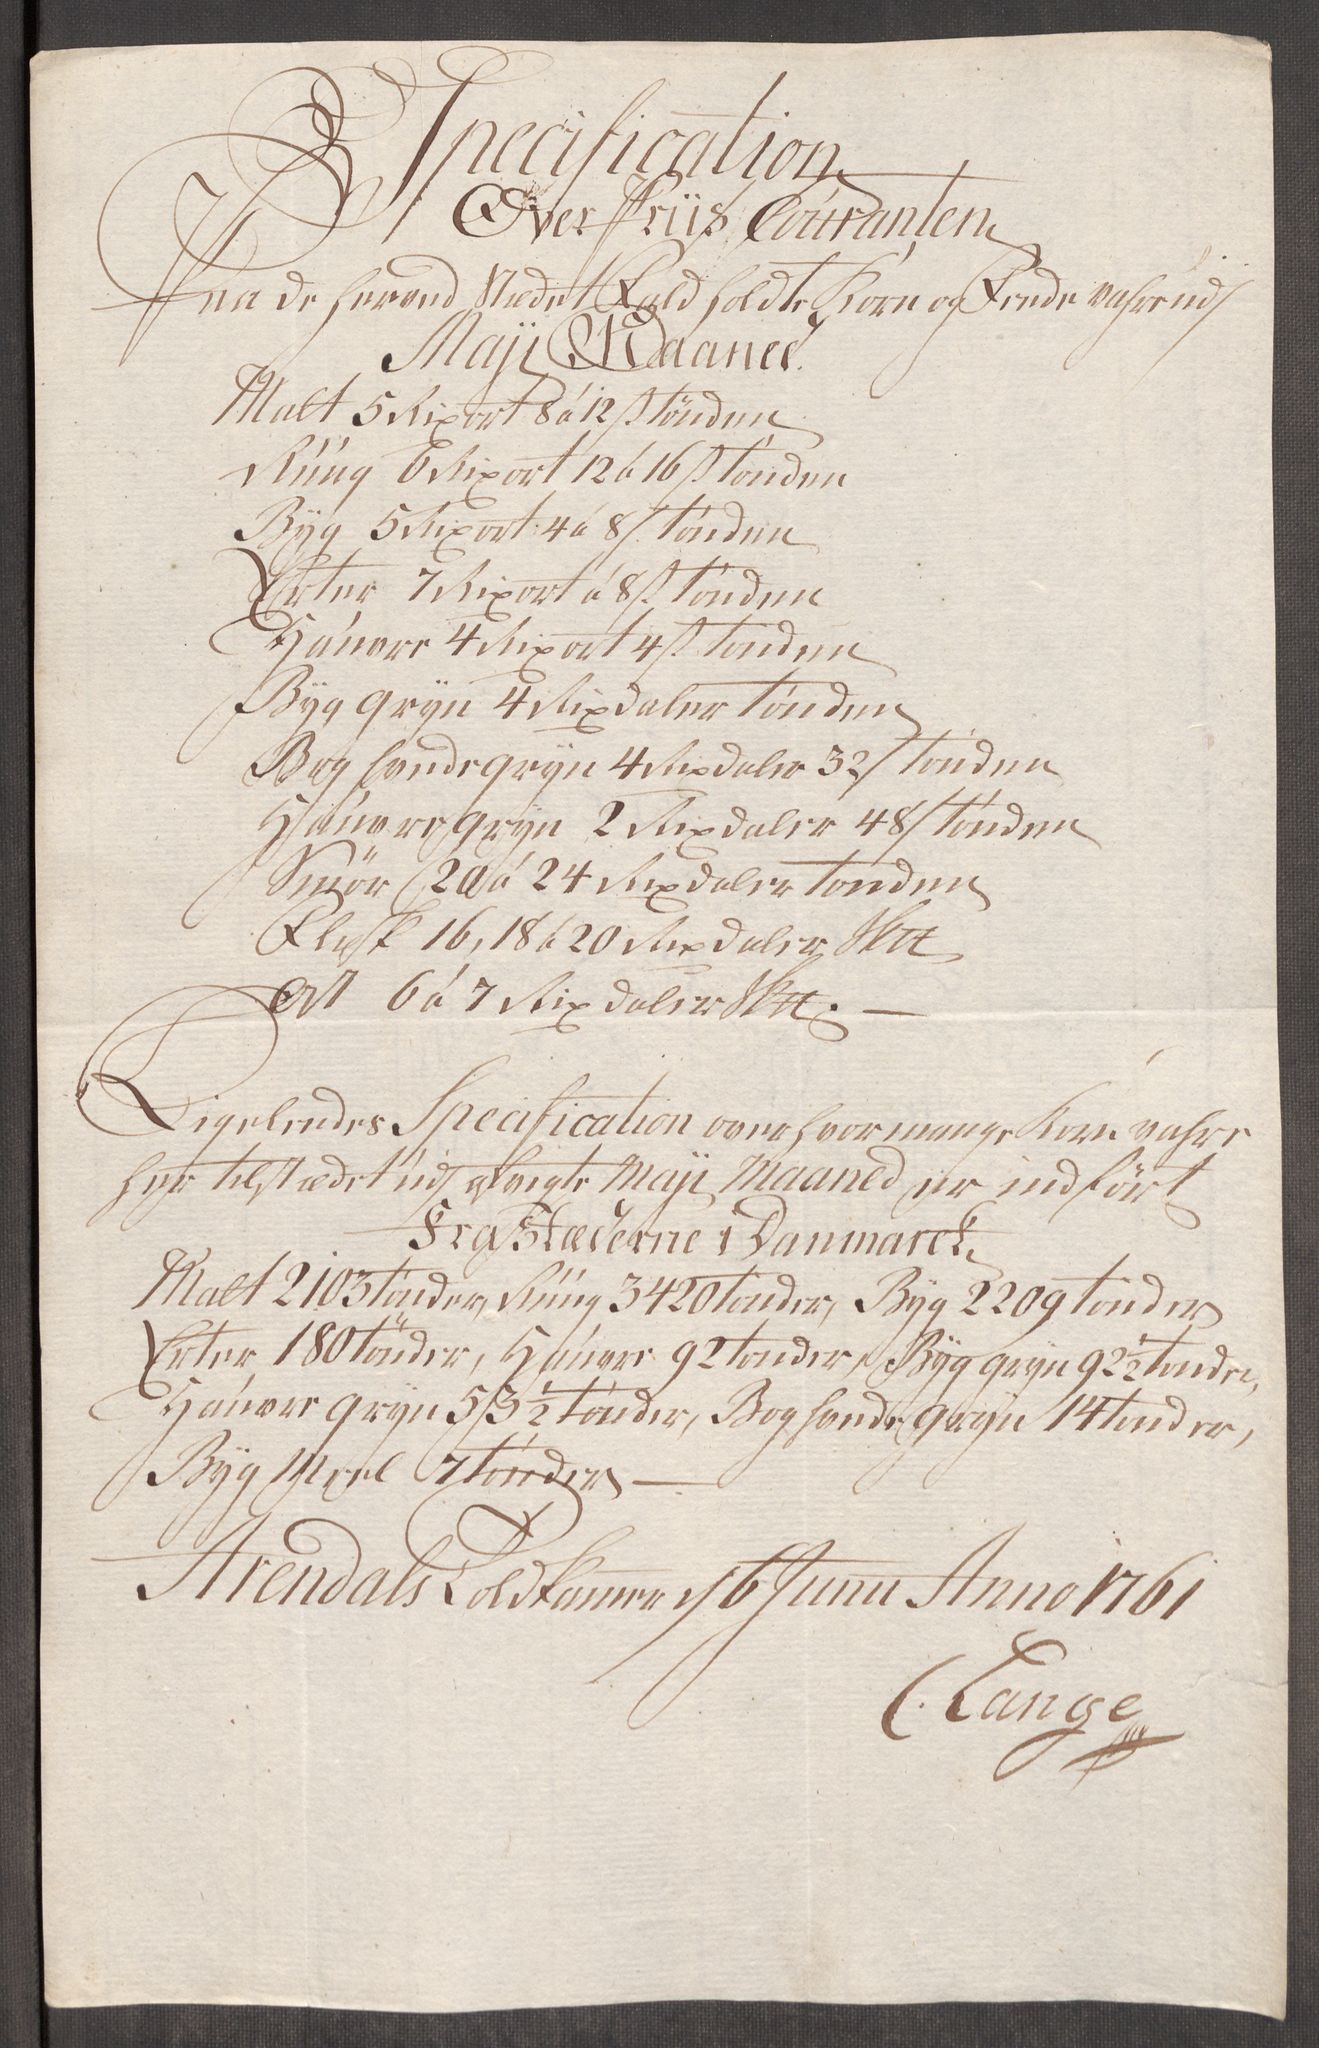 Specification
Over Priis Couranten
Paa de herved Stædet Fald holdte Korn og Fede vahre udj
Maji Maaned.
Malt 5 Rixort 8 á 12 s tönden
Rüüg 6 Rixort 12 á 16 s tönden
Byg 5 Rixort 4 á 8 s. tönden
Erter 7 Rixort á 8 s. tönden
Haúvre 4 Rixort 4 s. tönden
Byg gryn 4 Rixdaler tönden
Bog hvede gryn 4 Rixdaler 32 s tönden
Haúvre gryn 2 Rixdaler 48 s tönden
Smör 20 á 24 Rixdaler tönden
Flesk 16, 18 á 20 Rixdaler Sktt
Ost 6 á 7 Rixdaler Sktt. —
Ligeledes Specification over hvor mange Korn vahre
her til stædet udj afvigte Maji Maaned er indfört
Fra Stæderne i Danmarck
Malt 2103 tönder, Rüüg 3420 tönder, Byg 2209 tönder
Erter 180 tönder, Haúvre 92 tönder, Byg gryn 92½ tönder,
Haúvre gryn 53½ tönder, Bog hvede gryn 14 tönder,
Byg Meel 7 tönder —
Arendals Toldkamer d 6 Junii Anno 1761
C. Lange